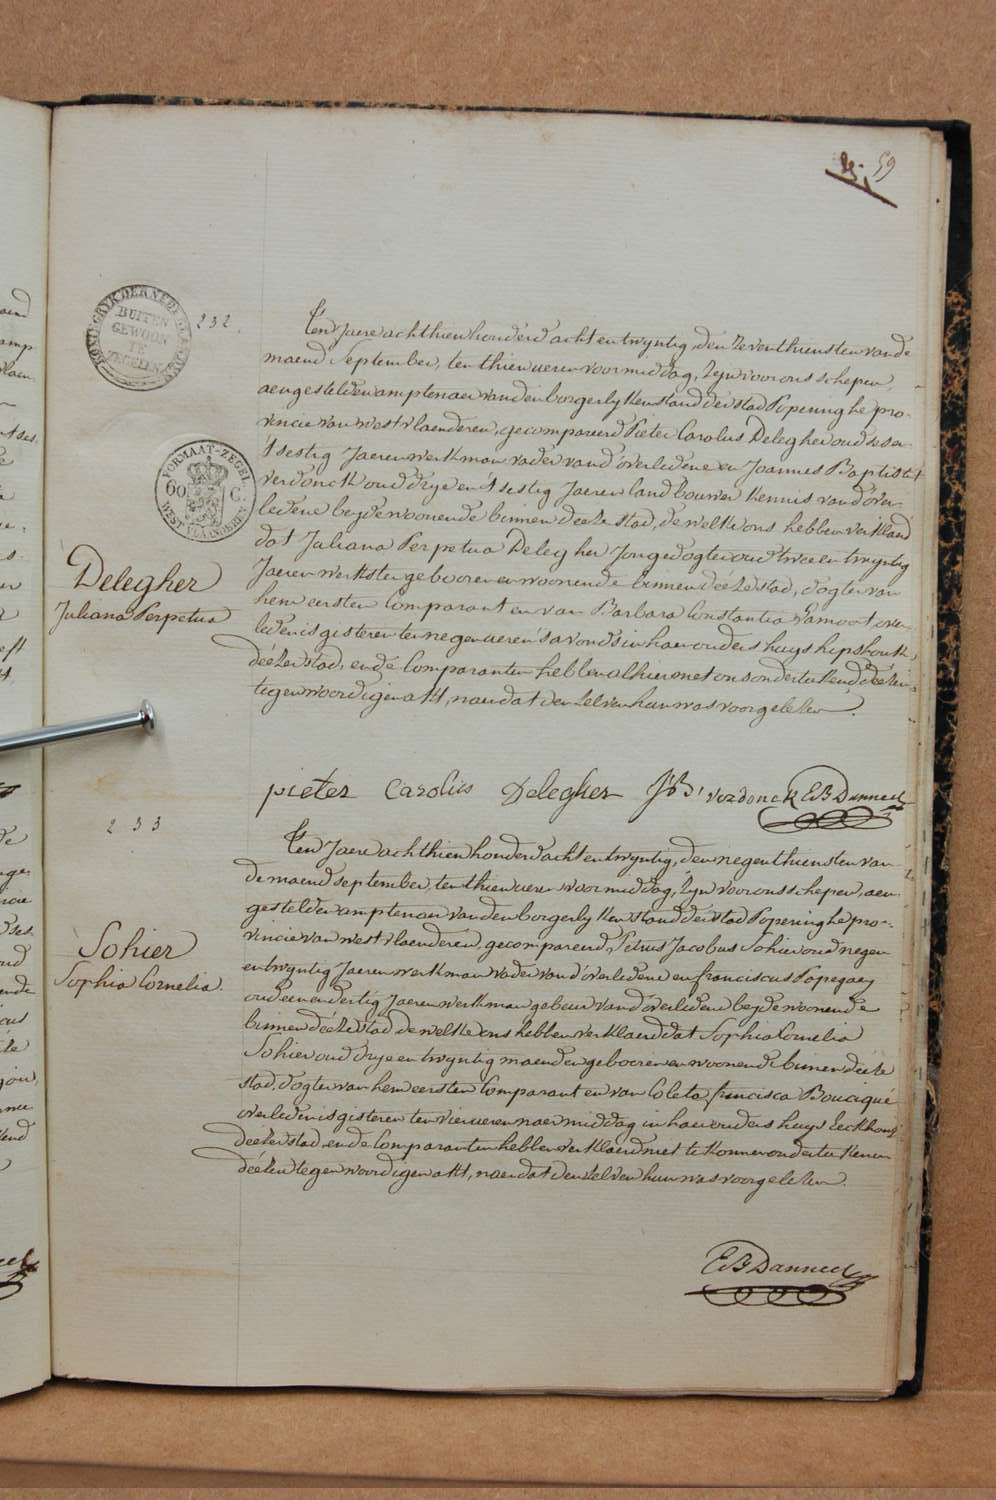 59
KONINGRYK DER NEDERLANDEN
BUITEN
GEWOON
TE
ZEGELEN
232.
FORMAAT-ZEGEL
60 C.
WEST VLAANDEREN
Delegher
Juliana Perpetua
Ten Jaere achthien honderd acht en twyntig, den zeventhiensten van de
maend September, ten thien ueren voormiddag, zyn voor ons schepen,
aengestelden amptenaer van den borgerlyken stand der stad Poperinghe pro-
vincie van westvlaenderen, gecompareerd Pieter Carolus Delegher oud
tsestig Jaeren werkman vader van d'overledene en Joannes Baptiste
verdonck oud drye en tsestig Jaeren landbouwer kennis van d'over-
ledene beyde woonende binnen deeze stad, de welke ons hebben verklaerd
dat Juliana Perpetua Delegher Jongedogter oud twee en twyntig
Jaeren werkster geboren en woonende binnen deeze stad, dogter van
hem eersten Comparant en van Barbara Constantia Vamoot over-
leden is gisteren ten negen ueren 's avonds in haer ouders huys
deezer stad, en de Comparanten hebben alhier met ons onderteekend deezen
tegenwoordigen akt, naer dat den zelven hun was voorgelezen.
pieter Carolus Delegher J:B: verdonck EB Danneel
233
Sohier
Sophia Cornelia.
Ten Jaere achthien honderd acht en twyntig, den negenthiensten van
de maend september, ten thien ueren voormiddag, zyn voor ons schepen, aen-
gestelden amptenaer van den borgerlyken stand der stad Poperinghe pro-
vincie van westvlaenderen, gecompareerd, Petrus Jacobus Sohier oud negen
en twyntig Jaeren werkman vader van d'overledene en franciscus Popegaey
oud een en dertig Jaeren werkman gebeur van d'overledene beyde woonende
binnen deeze stad de welke ons hebben verklaerd dat Sophia Cornelia
Sohier oud drye en twyntig maenden geboren en woonende binnen deeze
stad, dogter van hem eersten Comparant en van Coleta francisca Bouciqué
overleden is gisteren ten vier ueren naermiddag in haer ouders huys Eeckhout
deezer stad, en de Comparanten hebben verklaerd niet te konnen onderteekenen
deezen tegenwoordigen akt, naer dat den zelven hun was voorgelezen.
EB Danneel